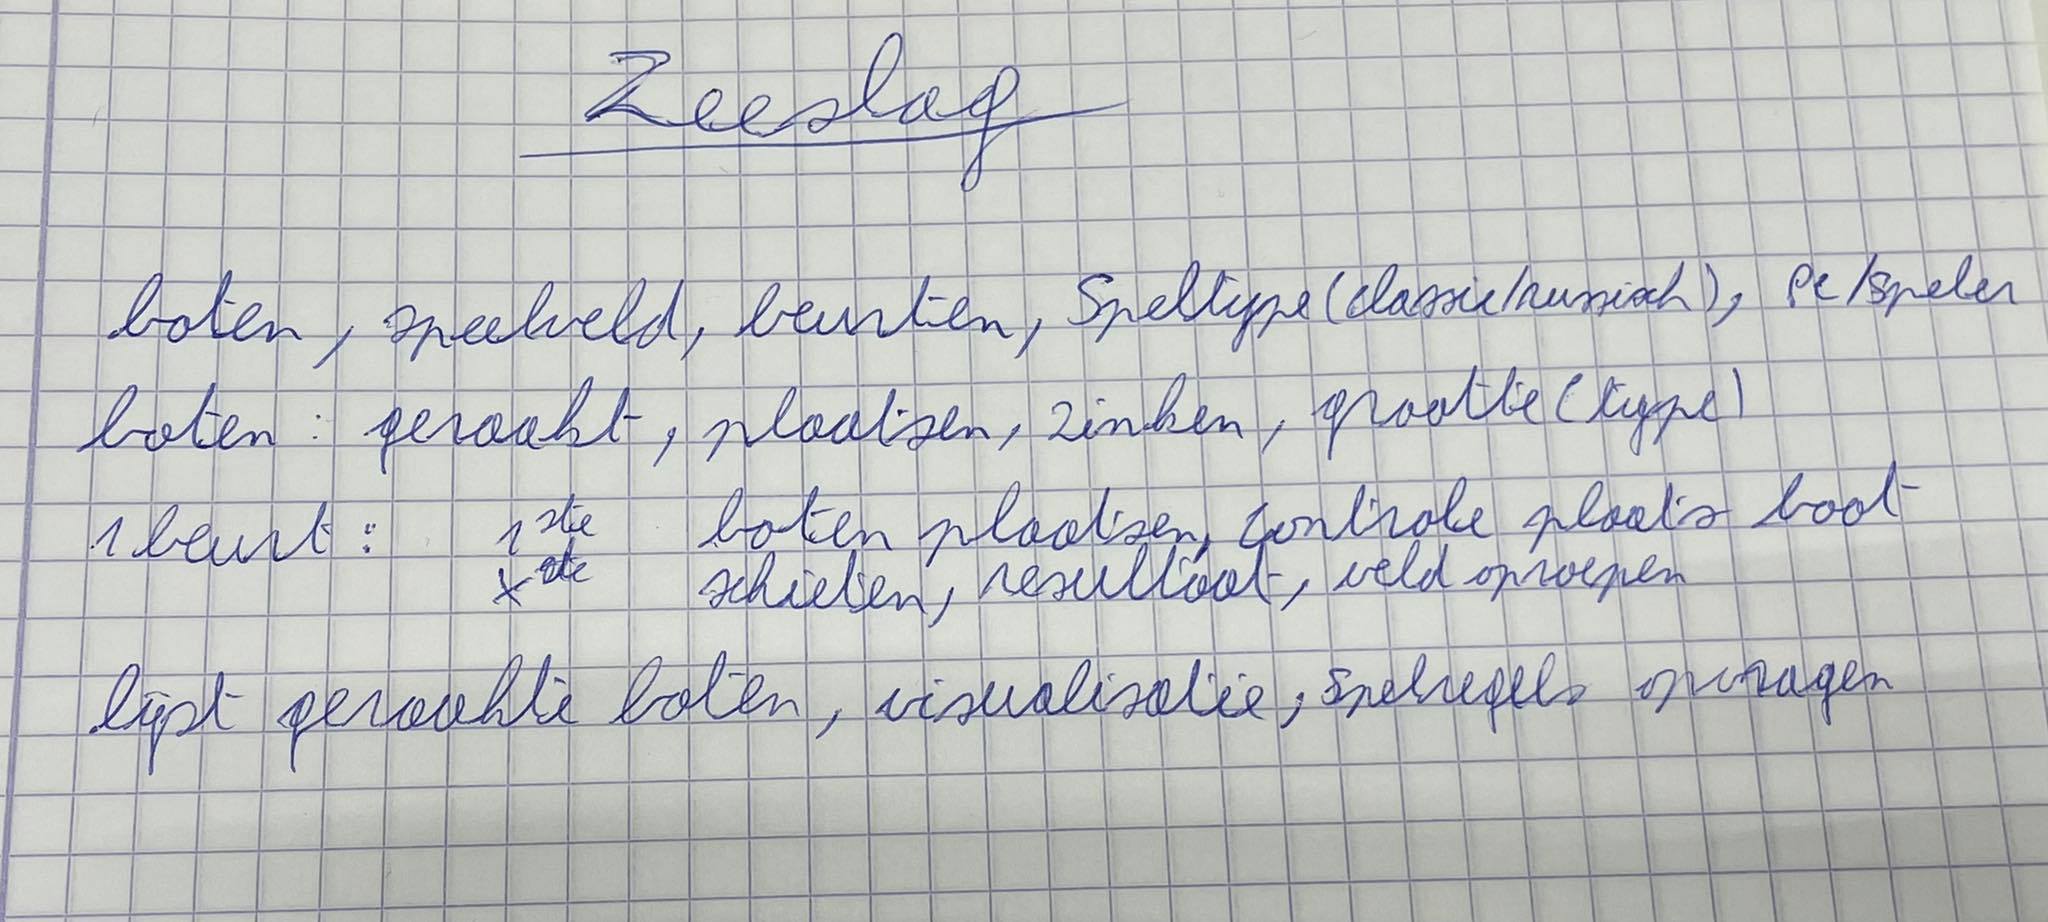 Zeeslag
boten, speelveld, beurten, Speltype (classic/russisch), Pc/speler
boten: geraakt, plaatsen, zinken, grootte (type)
1 beurt: 1ste boten plaatsen, controle plaats boot
xde schieten, resultaat, veld oproepen
lijst geraakte boten, visualisatie, spelregels opvragen